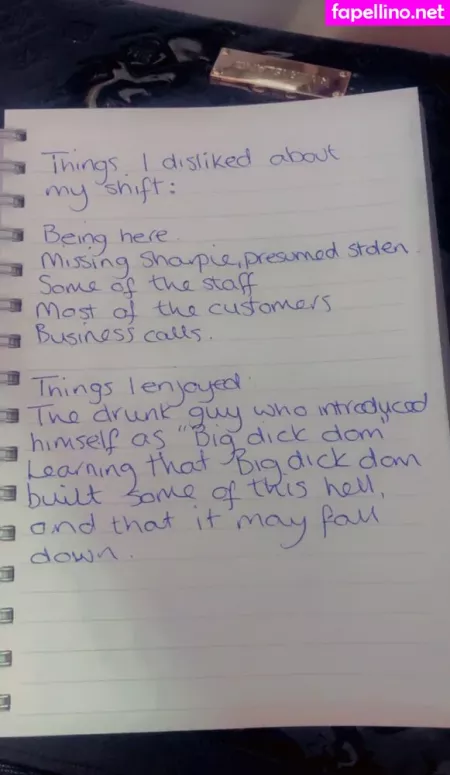 fapellino.net
Things I disliked about
my shift:
Being here.
Missing Sharpie, presumed stolen.
Some of the staff
Most of the customers
Business calls.
Things I enjoyed.
The drunk guy who introduced
himself as "Big dick dom"
Learning that Big dick dom
built some of this hell,
and that it may fall
down.